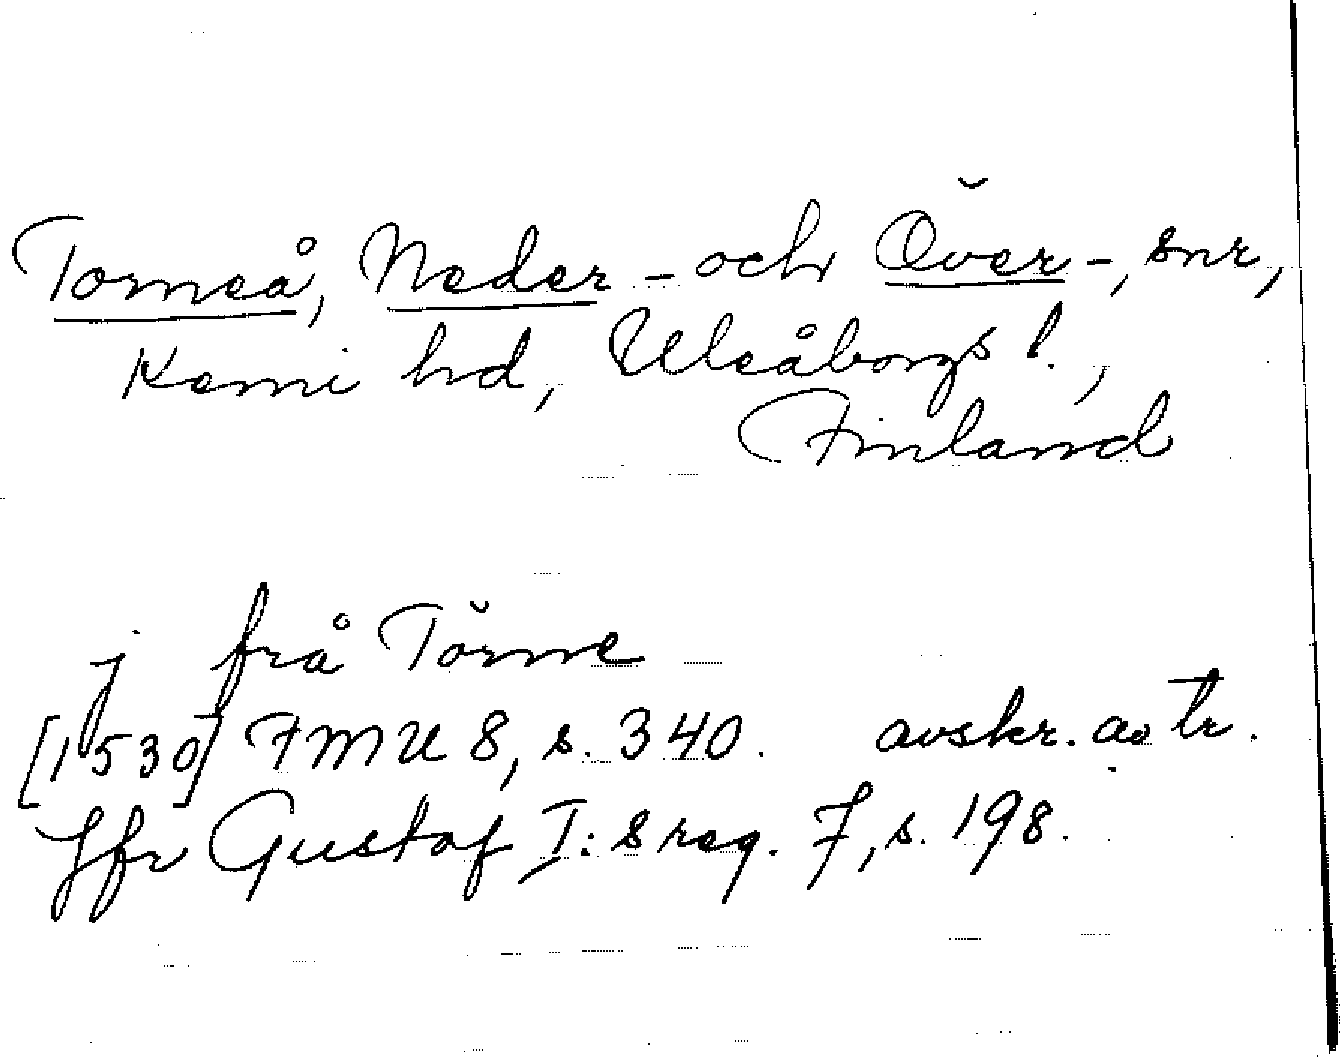 Torneå, Neder- och Över-, snr,
Kemi hd, Uleåborgs l.,
Finland
j frå Törne
[1530] FMU 8, s. 340. avskr. av tr.
Jfr Gustaf I:s reg. 7, s. 198.